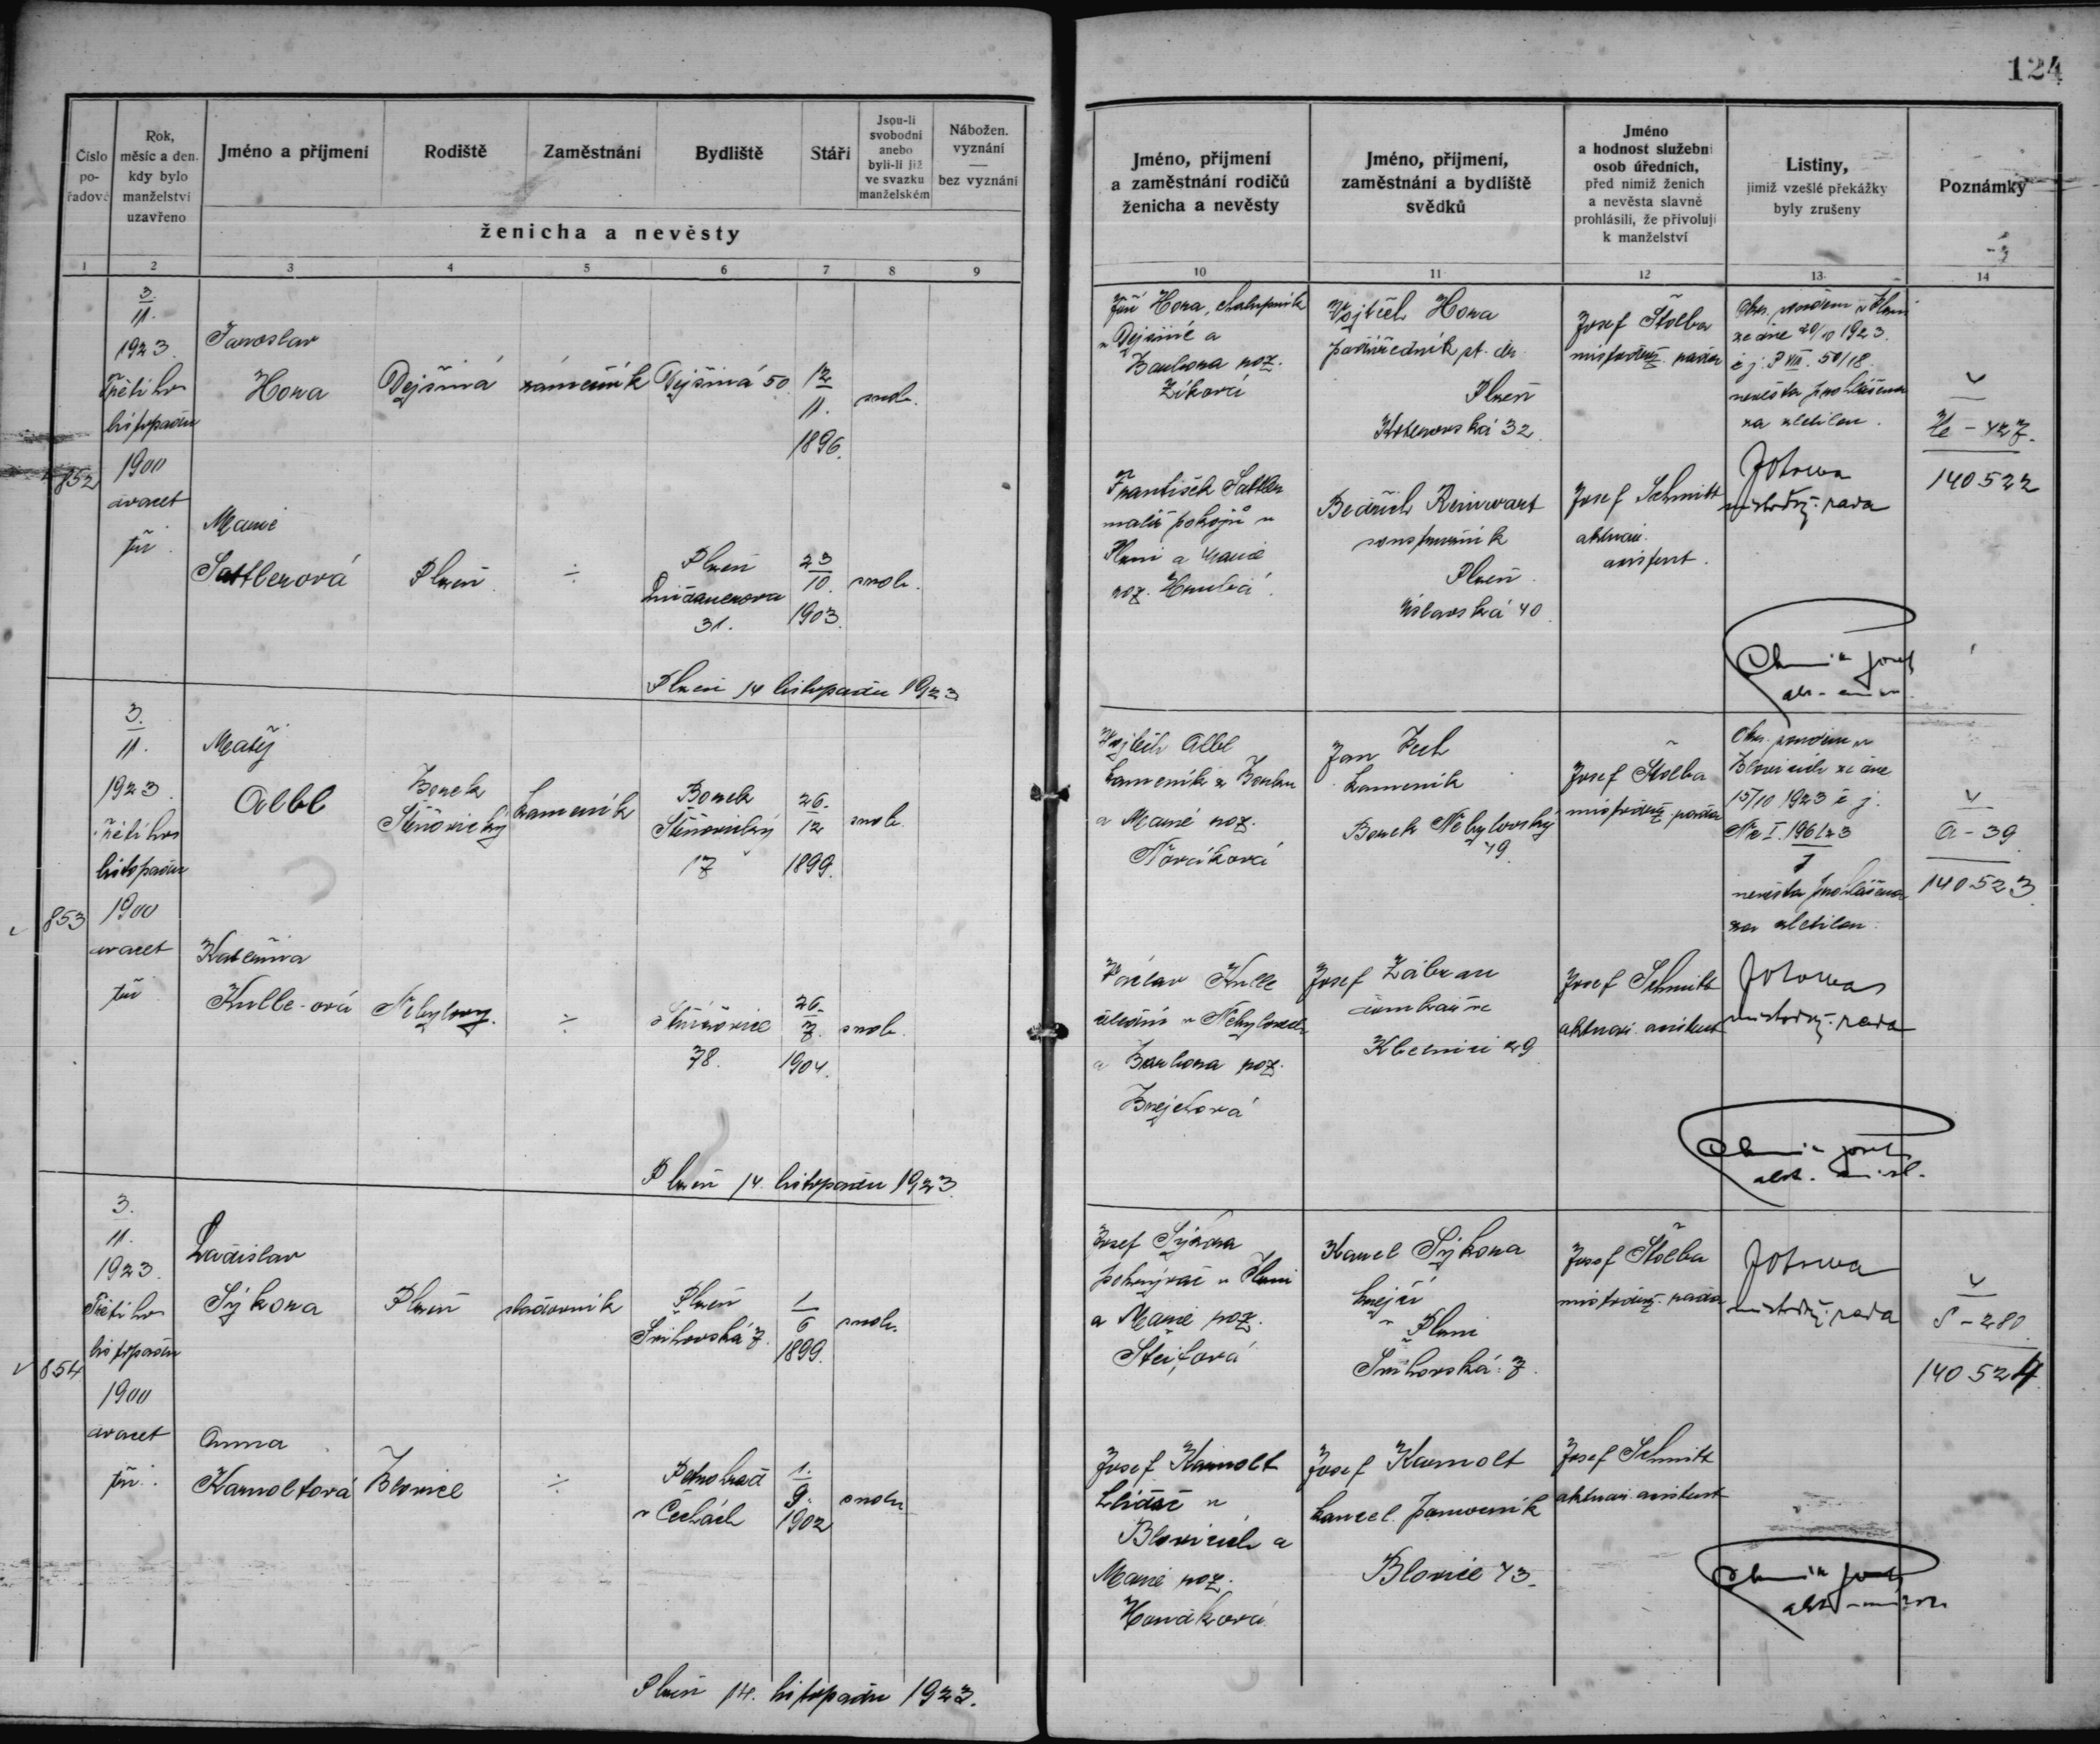 124
Číslo pořadové
Rok, měsíc a den, kdy bylo manželství uzavřeno
Jméno a příjmení
Rodiště
Zaměstnání
Bydliště
Stáří
Jsou-li svobodni anebo byli-li již ve svazku manželském
Nábožen. vyznání — bez vyznání
ženicha a nevěsty
1 2 3 4 5 6 7 8 9
Jméno, příjmení a zaměstnání rodičů ženicha a nevěsty
Jméno, příjmení, zaměstnání a bydliště svědků
Jméno a hodnost služební osob úředních, před nimiž ženich a nevěsta slavně prohlásili, že přivolují k manželství
Listiny, jimiž vzešlé překážky byly zrušeny
Poznámky
10 11 12 13 14
852
3
11.
1923.
Třetího
listopadu
1900
dvacet
tři.
Jaroslav
Hora
Dejšiná
zámečník
Dejšiná 50
12
11.
1896.
svob.
Marie
Sattlerová
Plzeň
÷
Plzeň
31.
23
10.
1903.
svob.
Plzeň 14 listopadu 1923
Jiří Hora, chalupník
v Dejšiné a
Barbora roz.
Zíková
František Sattler
malíř pokojů v
Plzni a Marie
roz.
Vojtěch Hora
podúředník st. dr.
Plzeň
Koterovská 32.
Bedřich Reinwart
soustružník
Plzeň
Úslavská 40.
Josef Štolba
místodrž. rada
Josef Schmitt
aktuár.
asistent.
Okr. soudem v Plzni
ze dne 20/10 1923.
č j. P VIII. 50/18
nevěsta prohlášena
za zletilou.
místodrž. rada
He - 427.
140522
853
3.
11.
1923.
Třetího
listopadu
1900
dvacet
tři
Matěj
Albl
Borek
Štěnovický
kameník
Borek
Štěnovický
17
26.
12
1899.
svob.
Kateřina
Kulle-ová
Nebylovy.
÷
Štěnovice
78.
26.
7.
1904.
svob.
Plzeň 14. listopadu 1923.
Vojtěch Albl
kameník z Borku
a Marie roz.
Václav Kulle
v Nebylovech
a Barbora roz.
Brejchová
Jan
kameník
Borek Nebylovský
49
Josef Zábran
29
Josef Štolba
místodrž. rada
Josef Schmitt
aktuár. asistent
Okr. soudem v
Blovicích ze dne
15/10 1923 č j.
Nc I. 196/23
7
nevěsta prohlášena
za zletilou.
místodrž. rada
A - 39.
140523.
854
3.
11.
1923.
Třetího
listopadu
1900
dvacet
tři.
Ladislav
Sýkora
Plzeň
sladovník
Plzeň
Smíchovská 7.
1
6
1899.
svob.
Anna
Karnoltová
Blovice
÷
Petrohrad
v Čechách
1.
9.
1902
svob.
Plzeň 14. listopadu 1923.
Josef Sýkora
pokrývač v Plzni
a Marie roz.
Josef Karnolt
hlídač v
Blovicích a
Marie roz.
Horáková
Karel Sýkora
krejčí
v Plzni
Smíchovská 7.
Josef Karnolt
kancel. pomocník
Blovice 43.
Josef Štolba
místodrž. rada
Josef Schmitt
aktuár. asistent
místodrž. rada
S - 280.
140524